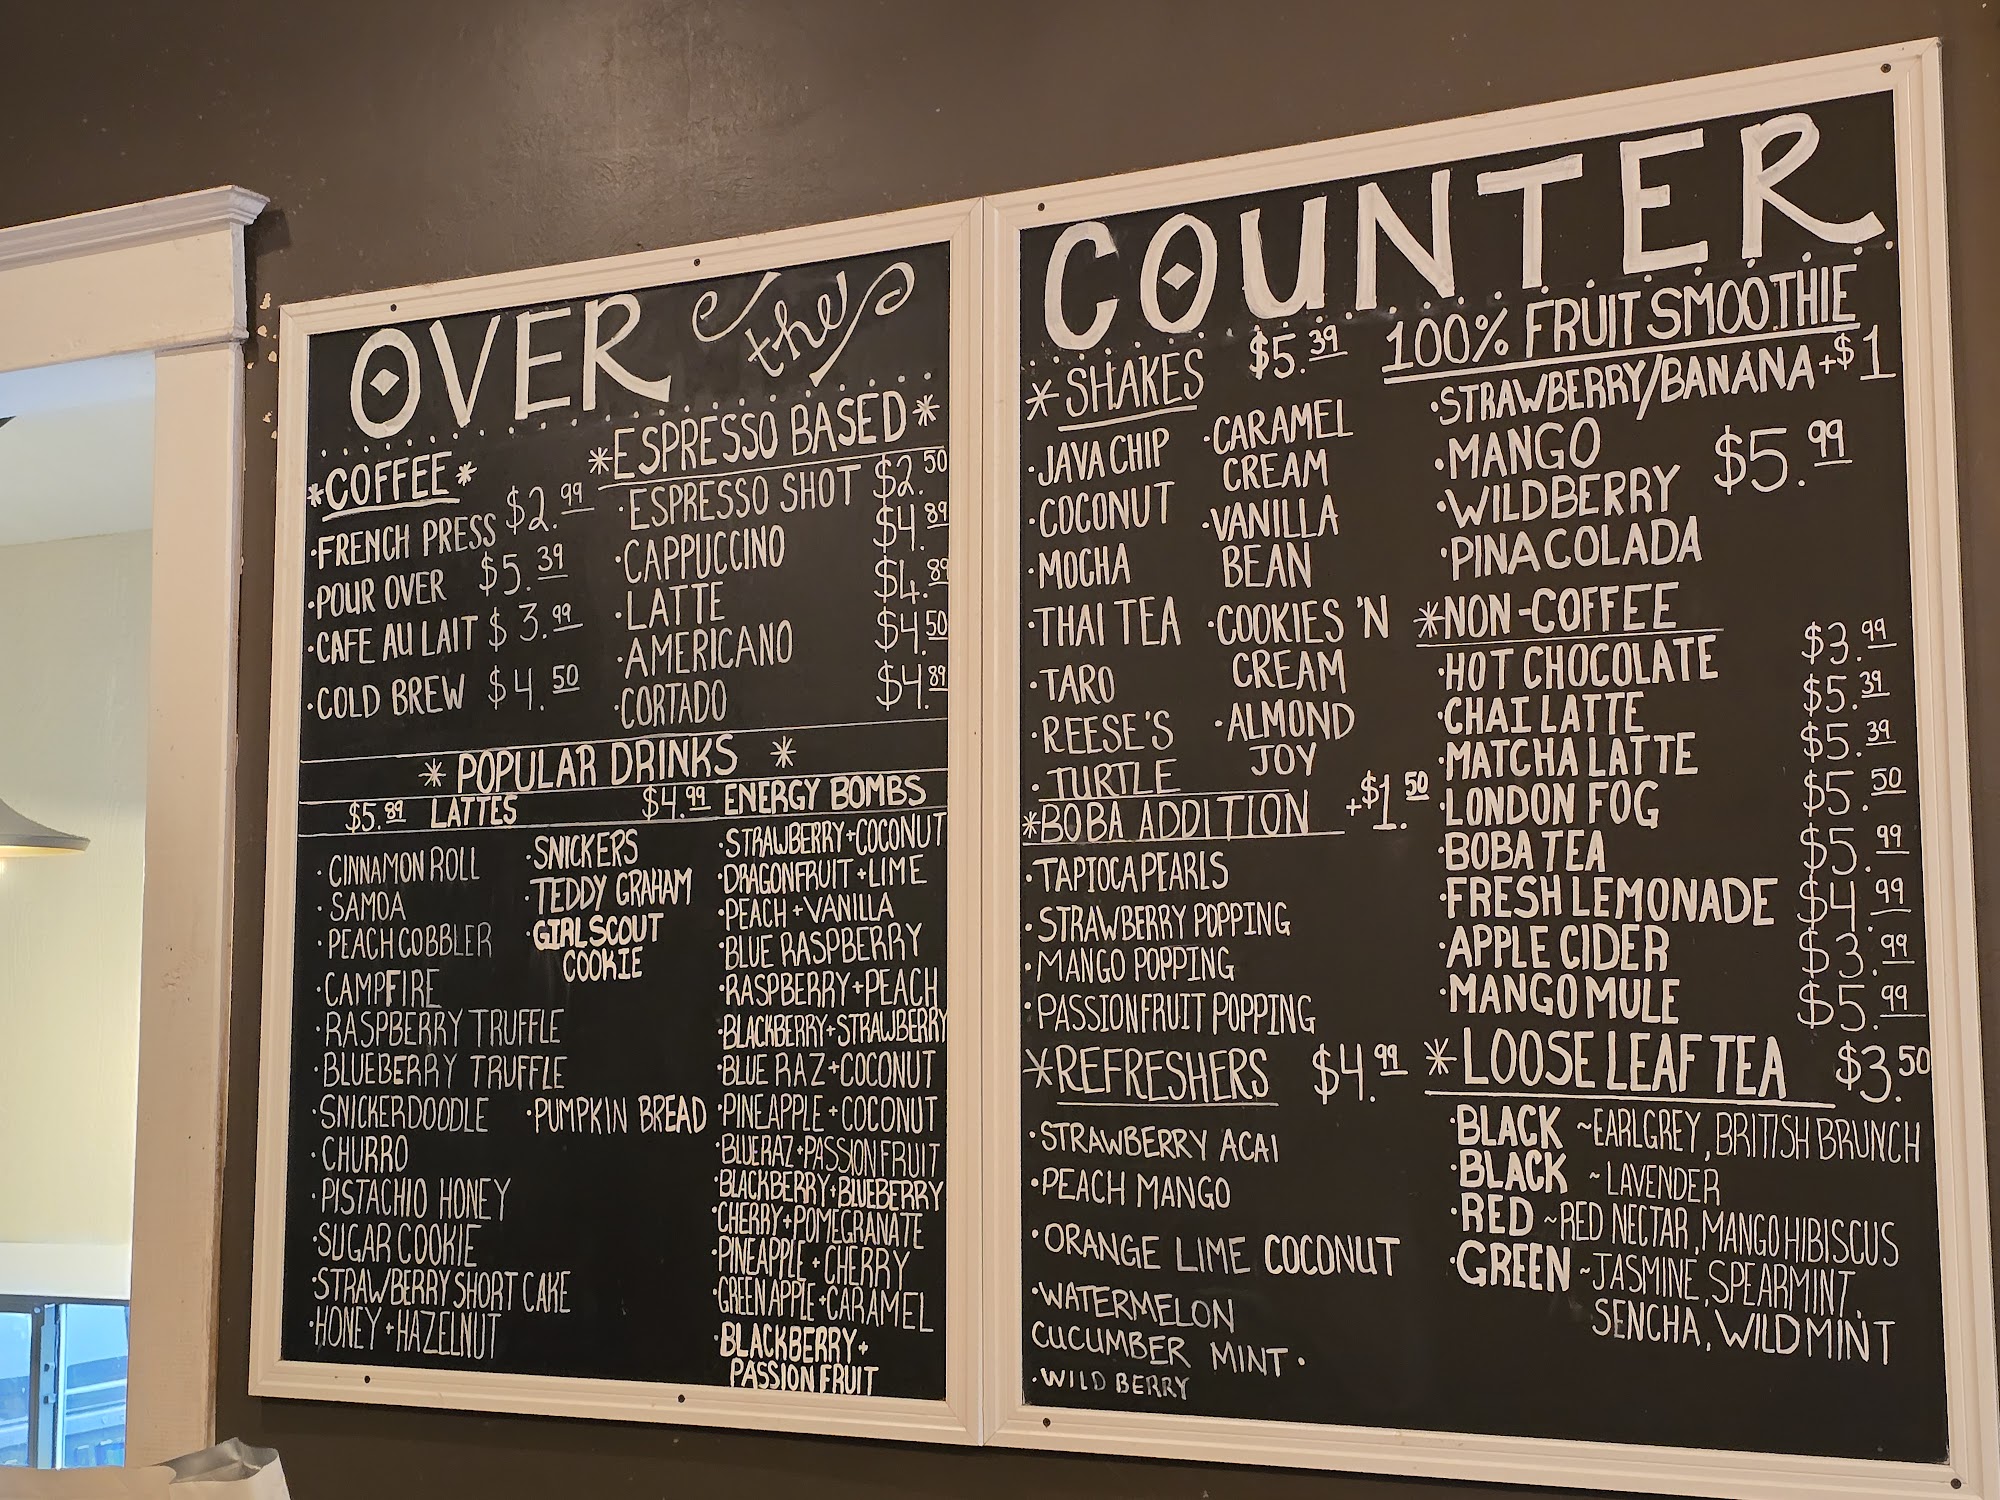 OVER the
*COFFEE*
·FRENCH PRESS $2.99
·POUR OVER $5.39
·CAFE AU LAIT $3.99
·COLD BREW $4.50
*ESPRESSO BASED*
·ESPRESSO SHOT $2.50
·CAPPUCCINO $4.89
·LATTE $4.89
·AMERICANO $4.50
·CORTADO $4.89
* POPULAR DRINKS *
$5.89 LATTES
·CINNAMON ROLL
·SAMOA
·PEACH COBBLER
·CAMPFIRE
·RASPBERRY TRUFFLE
·BLUEBERRY TRUFFLE
·SNICKERDOODLE
·CHURRO
·PISTACHIO HONEY
·SUGAR COOKIE
·STRAWBERRY SHORT CAKE
·HONEY + HAZELNUT
·SNICKERS
·TEDDY GRAHAM
·GIRL SCOUT
COOKIE
·PUMPKIN BREAD
$4.99 ENERGY BOMBS
·STRAWBERRY+COCONUT
·DRAGONFRUIT+LIME
·PEACH+VANILLA
·BLUE RASPBERRY
·RASPBERRY+PEACH
·BLACKBERRY+STRAWBERRY
·BLUE RAZ+COCONUT
·PINEAPPLE+COCONUT
·BLUERAZ+PASSION FRUIT
·BLACKBERRY+BLUEBERRY
·CHERRY+POMEGRANATE
·PINEAPPLE+CHERRY
·GREEN APPLE+CARAMEL
·BLACKBERRY+
PASSION FRUIT
COUNTER
*SHAKES $5.39
·JAVA CHIP
·COCONUT
·MOCHA
·THAI TEA
·TARO
·REESE'S
·TURTLE
·CARAMEL
CREAM
·VANILLA
BEAN
·COOKIES 'N
CREAM
·ALMOND
JOY
*BOBA ADDITION +$1.50
·TAPIOCA PEARLS
·STRAWBERRY POPPING
·MANGO POPPING
·PASSIONFRUIT POPPING
*REFRESHERS $4.99
·STRAWBERRY ACAI
·PEACH MANGO
·ORANGE LIME COCONUT
·WATERMELON
CUCUMBER MINT·
·WILD BERRY
100% FRUIT SMOOTHIE
·STRAWBERRY/BANANA +$1
·MANGO $5.99
·WILDBERRY
·PINA COLADA
*NON-COFFEE
·HOT CHOCOLATE $3.99
·CHAI LATTE $5.39
·MATCHA LATTE $5.39
·LONDON FOG $5.50
·BOBA TEA $5.99
·FRESH LEMONADE $4.99
·APPLE CIDER $3.99
·MANGO MULE $5.99
*LOOSE LEAF TEA $3.50
·BLACK ~EARLGREY, BRITISH BRUNCH
·BLACK ~LAVENDER
·RED ~RED NECTAR, MANGO HIBISCUS
·GREEN ~JASMINE, SPEARMINT,
SENCHA, WILD MINT